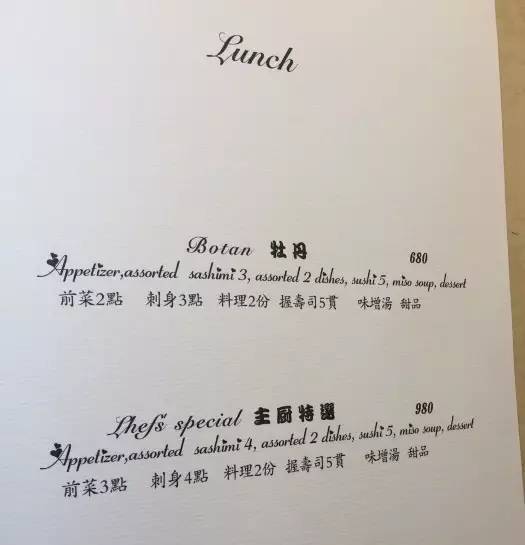 Lunch
Botan 牡丹 680
Appetizer,assorted sashimi 3, assorted 2 dishes, sushi 5, miso soup, dessert
前菜2點 刺身3點 料理2份 握壽司5貫 味增湯 甜品
Chef's special 主厨特選 980
Appetizer,assorted sashimi 4, assorted 2 dishes, sushi 5, miso soup, dessert
前菜3點 刺身4點 料理2份 握壽司5貫 味增湯 甜品